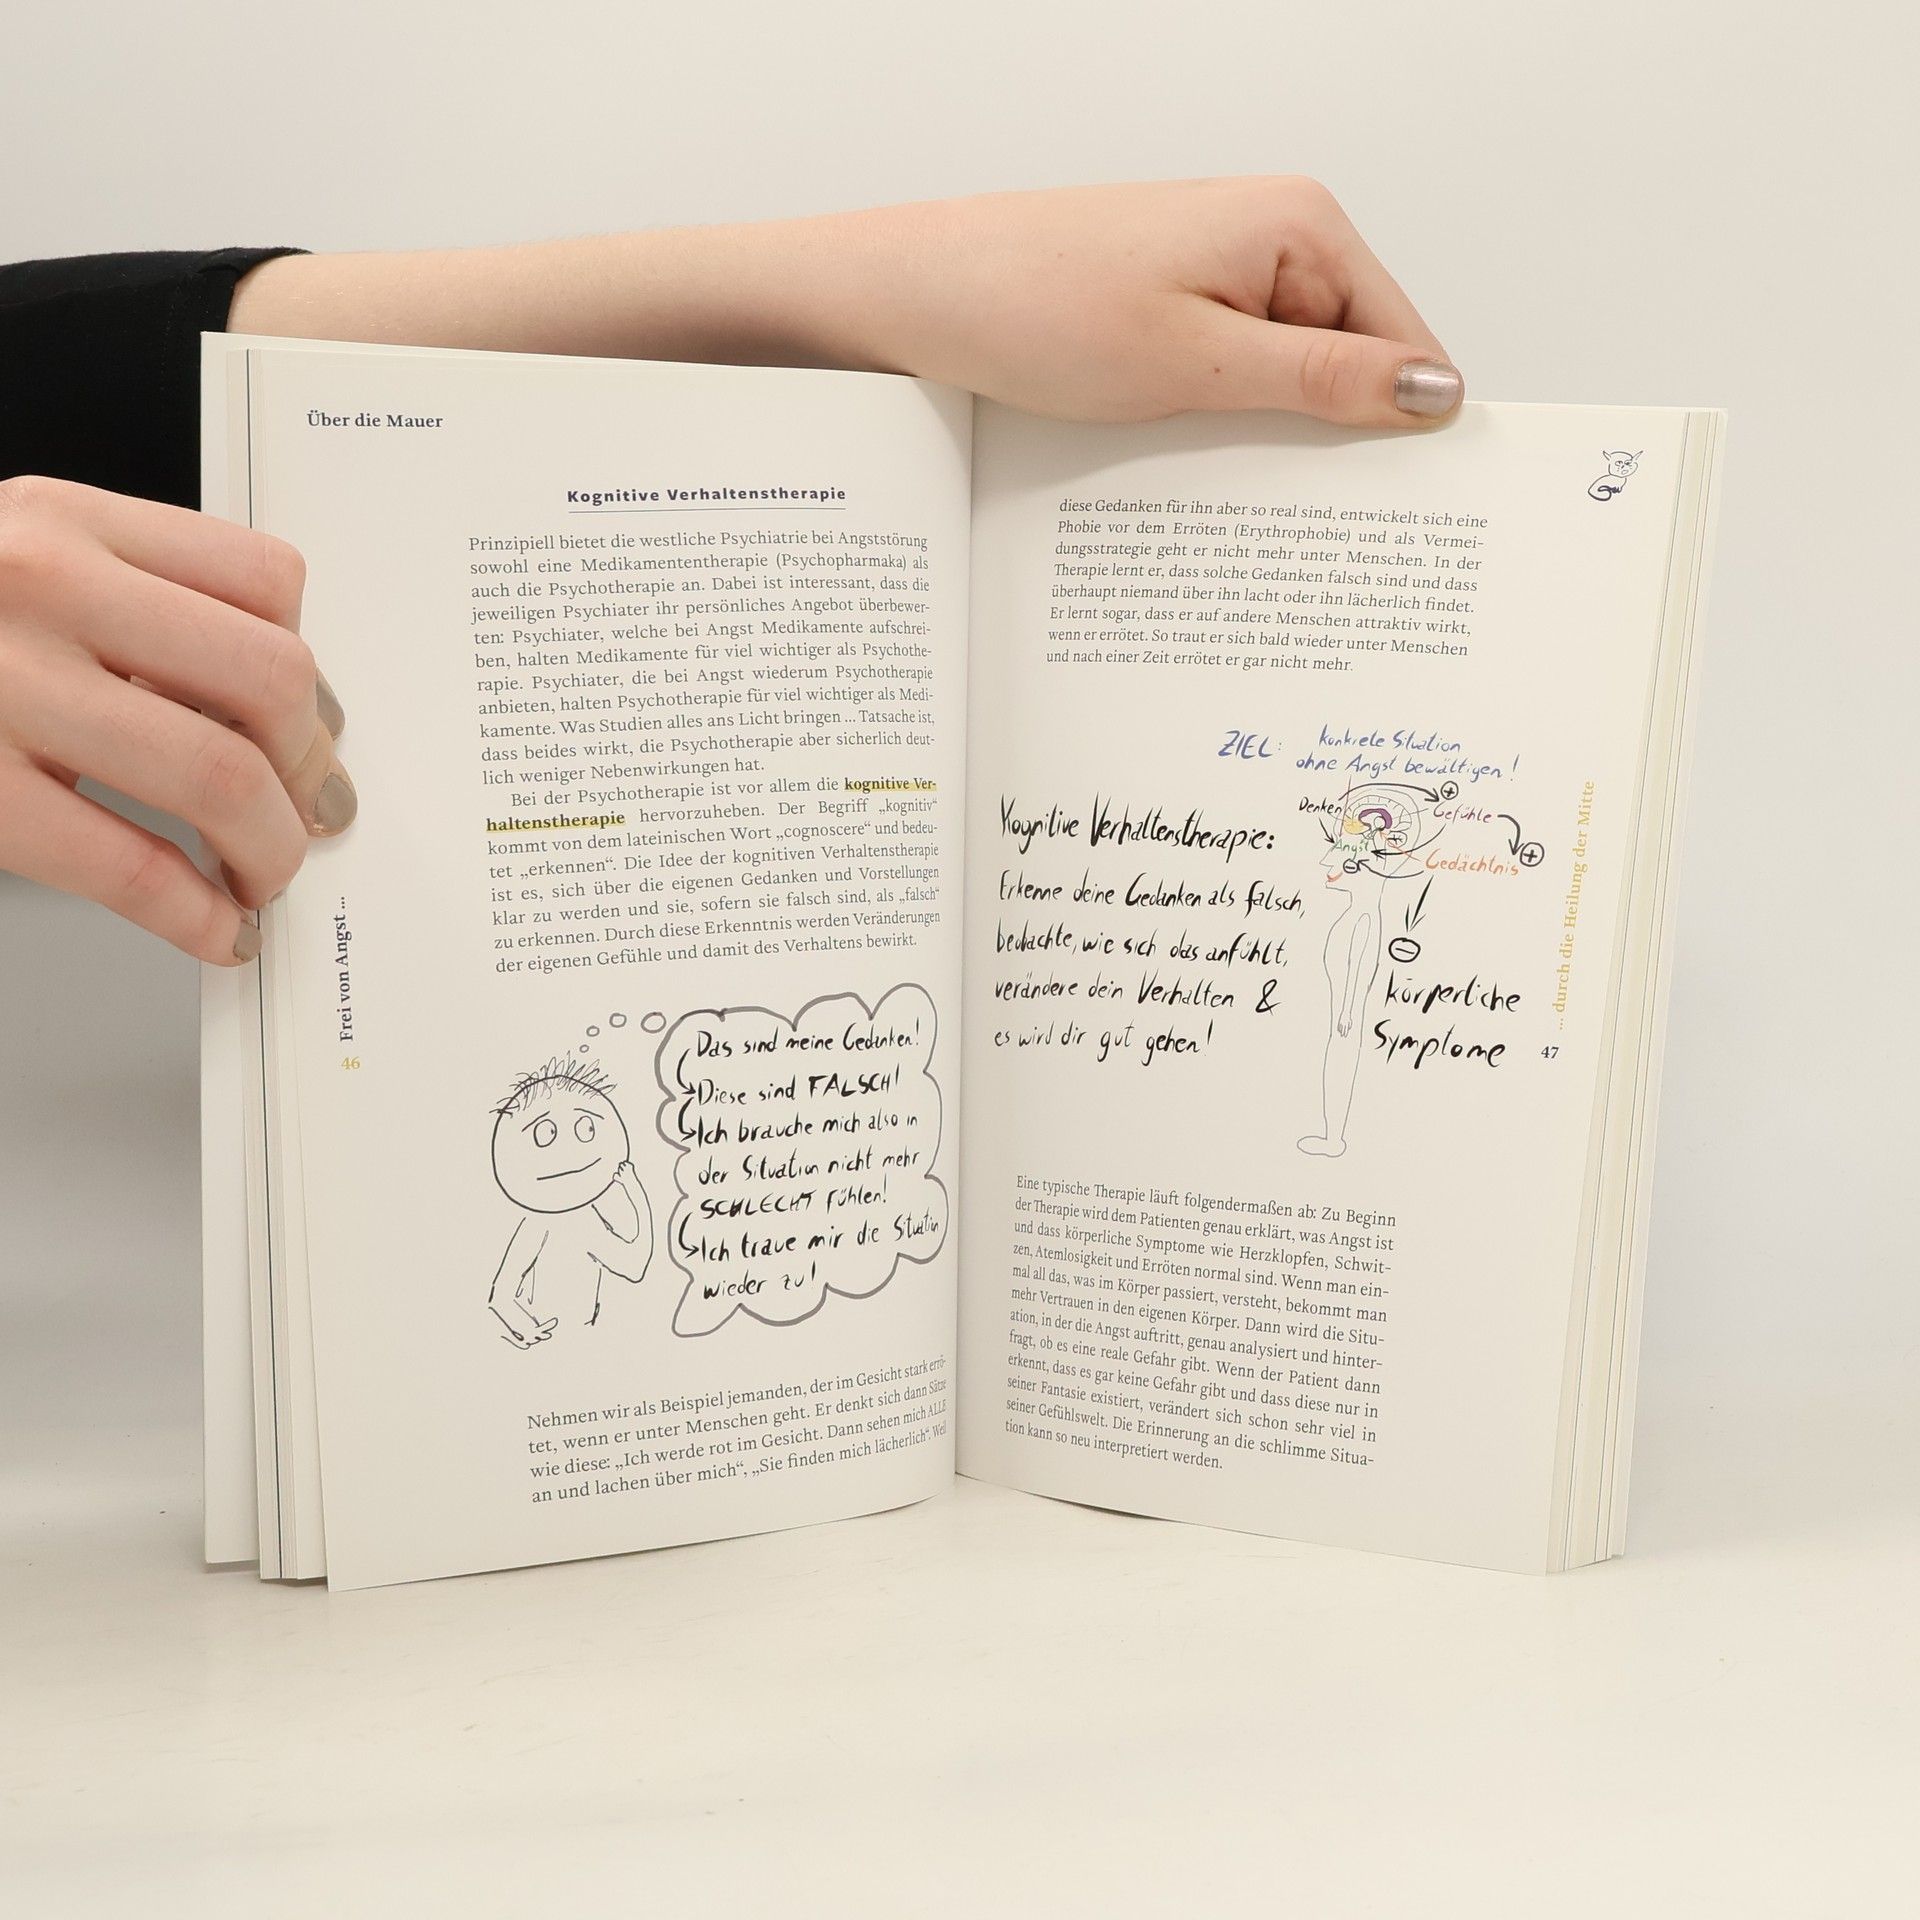 Über die Mauer
Kognitive Verhaltenstherapie
Prinzipiell bietet die westliche Psychiatrie bei Angststörung
sowohl eine Medikamententherapie (Psychopharmaka) als
auch die Psychotherapie an. Dabei ist interessant, dass die
jeweiligen Psychiater ihr persönliches Angebot überbewer-
ten: Psychiater, welche bei Angst Medikamente aufschrei-
ben, halten Medikamente für viel wichtiger als Psychothe-
rapie. Psychiater, die bei Angst wiederum Psychotherapie
anbieten, halten Psychotherapie für viel wichtiger als Medi-
kamente. Was Studien alles ans Licht bringen ... Tatsache ist,
dass beides wirkt, die Psychotherapie aber sicherlich deut-
lich weniger Nebenwirkungen hat.
Bei der Psychotherapie ist vor allem die kognitive Ver-
haltenstherapie hervorzuheben. Der Begriff „kognitiv“
kommt von dem lateinischen Wort „cognoscere“ und bedeu-
tet „erkennen“. Die Idee der kognitiven Verhaltenstherapie
ist es, sich über die eigenen Gedanken und Vorstellungen
klar zu werden und sie, sofern sie falsch sind, als „falsch“
zu erkennen. Durch diese Erkenntnis werden Veränderungen
der eigenen Gefühle und damit des Verhaltens bewirkt.
Das sind meine Gedanken!
Diese sind FALSCH!
Ich brauche mich also in
der Situation nicht mehr
SCHLECHT fühlen!
Ich traue mir die Situation
wieder zu!
Nehmen wir als Beispiel jemanden, der im Gesicht stark errö-
tet, wenn er unter Menschen geht. Er denkt sich dann Sätze
wie diese: „Ich werde rot im Gesicht. Dann sehen mich ALLE
an und lachen über mich“, „Sie finden mich lächerlich“. Weil
Frei von Angst ...
46
diese Gedanken für ihn aber so real sind, entwickelt sich eine
Phobie vor dem Erröten (Erythrophobie) und als Vermei-
dungsstrategie geht er nicht mehr unter Menschen. In der
Therapie lernt er, dass solche Gedanken falsch sind und dass
überhaupt niemand über ihn lacht oder ihn lächerlich findet.
Er lernt sogar, dass er auf andere Menschen attraktiv wirkt,
wenn er errötet. So traut er sich bald wieder unter Menschen
und nach einer Zeit errötet er gar nicht mehr.
ZIEL: konkrete Situation
ohne Angst bewältigen!
Denken
Gefühle
Angst
Gedächtnis
Kognitive Verhaltenstherapie:
Erkenne deine Gedanken als falsch,
beobachte, wie sich das anfühlt,
verändere dein Verhalten &
es wird dir gut gehen!
körperliche
Symptome
Eine typische Therapie läuft folgendermaßen ab: Zu Beginn
der Therapie wird dem Patienten genau erklärt, was Angst ist
und dass körperliche Symptome wie Herzklopfen, Schwit-
zen, Atemlosigkeit und Erröten normal sind. Wenn man ein-
mal all das, was im Körper passiert, versteht, bekommt man
mehr Vertrauen in den eigenen Körper. Dann wird die Situ-
ation, in der die Angst auftritt, genau analysiert und hinter-
fragt, ob es eine reale Gefahr gibt. Wenn der Patient dann
erkennt, dass es gar keine Gefahr gibt und dass diese nur in
seiner Fantasie existiert, verändert sich schon sehr viel in
seiner Gefühlswelt. Die Erinnerung an die schlimme Situa-
tion kann so neu interpretiert werden.
... durch die Heilung der Mitte
47